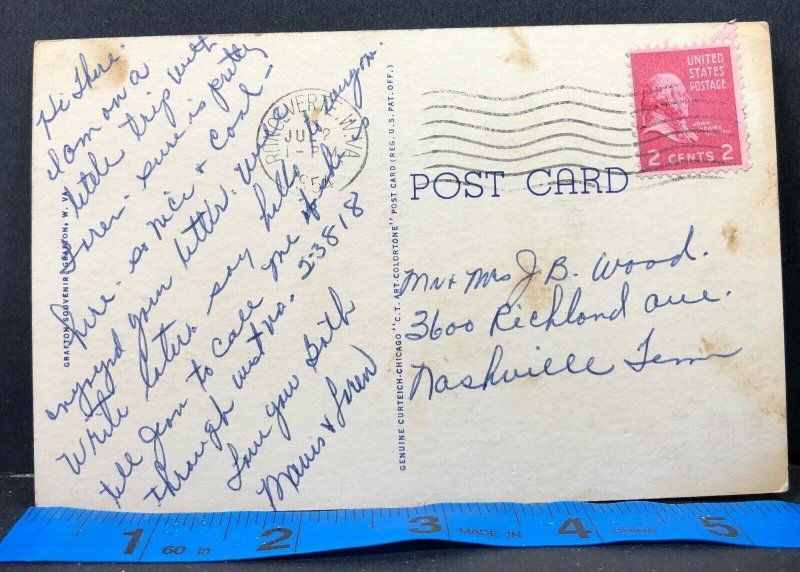 Hi there.
I am on a
little trip with
Loren. Sure is pretty
here. so nice & cool -
enjoyed your letter. Will
Write later. say hello to everyone.
tell Jean to call me if she is
through west no. 2-3818
Love you Both
Mavis & Loren
GRAFTON SOUVENIR, GRAFTON, W. VA.
GENUINE CURTEICH-CHICAGO "C.T. ART-COLORTONE" POST CARD (REG. U.S. PAT. OFF.)
RONCEVERTE W.VA.
1954
POST CARD
UNITED
STATES
POSTAGE
JOHN
ADAMS
2 CENTS 2
Mr & Mrs J. B. Wood.
3600 Richland ave.
Nashville Tenn
1 2 3 4 5
60 in
MADE IN
CHINA